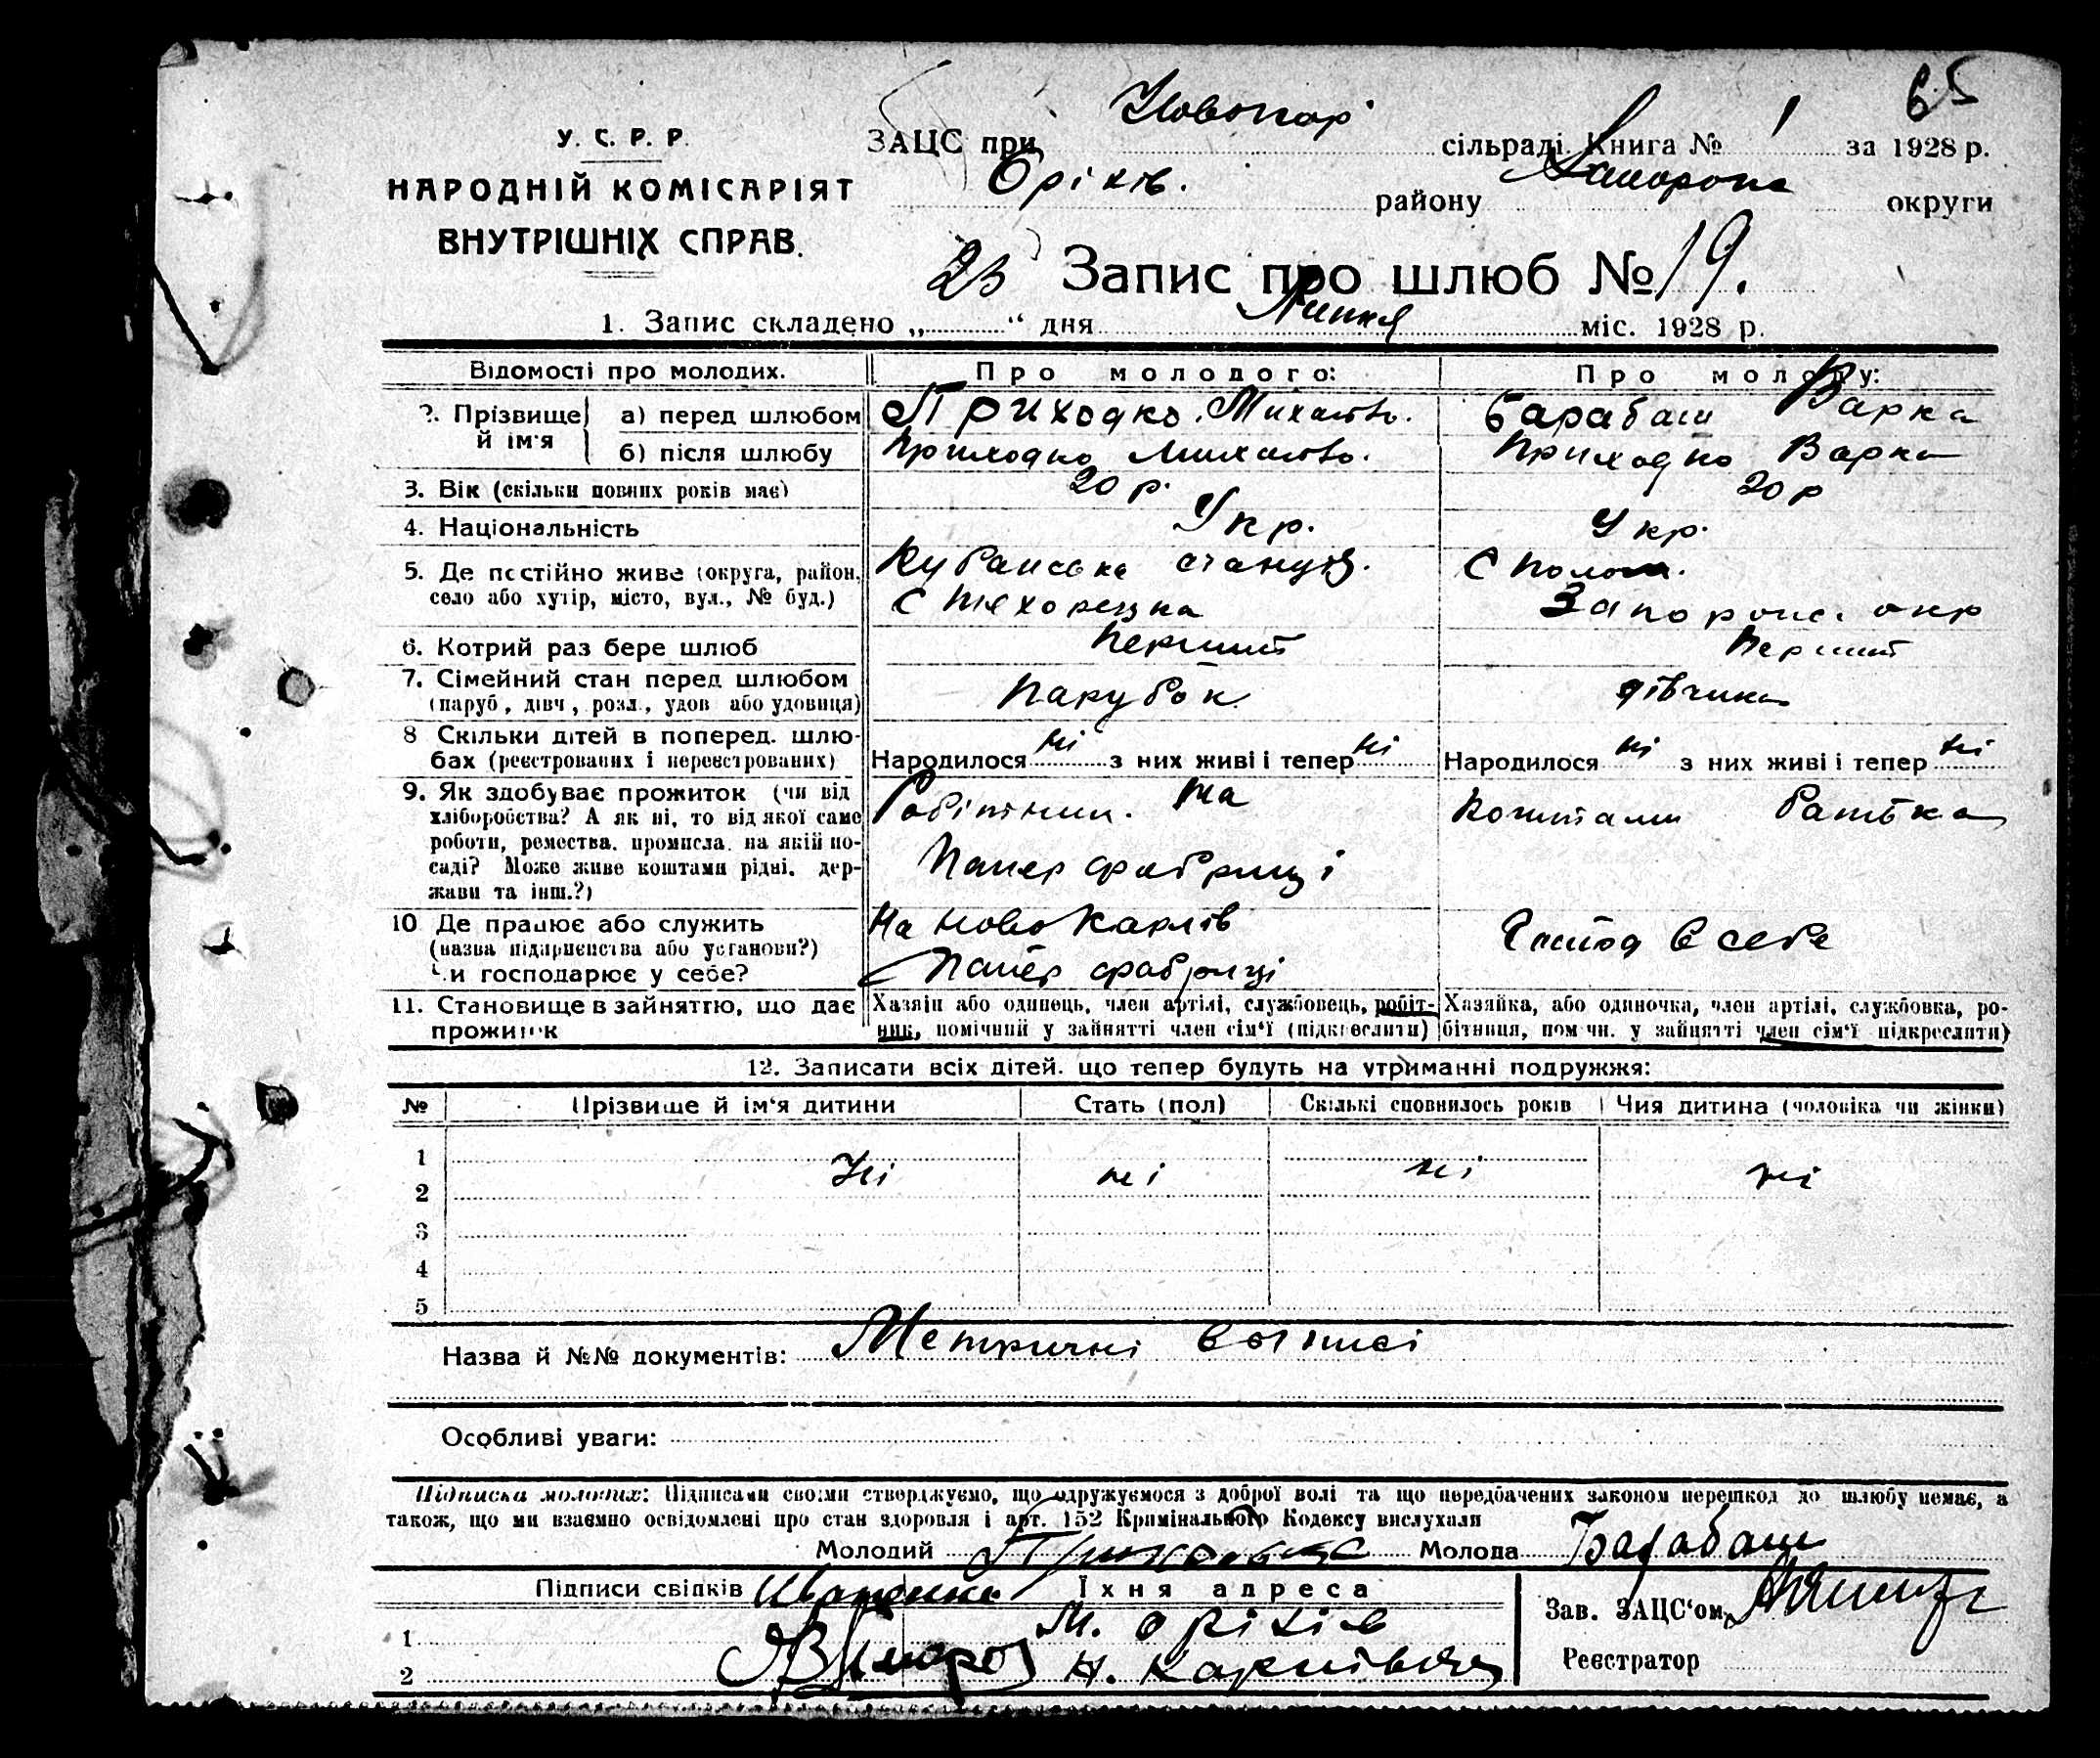 65
У. С. Р. Р.
НАРОДНІЙ КОМІСАРІЯТ
ВНУТРІШНІХ СПРАВ.
ЗАЦС при Новокар сільраді. Книга № 1 за 1928 р.
Оріхів. району округи
Запис про шлюб № 19.
1. Запис складено „ 23 “ дня Липня міс. 1928 р.
Відомості про молодих. Про молодого: Про молоду:
2. Прізвище й ім'я а) перед шлюбом Приходко Михайло. Барабаш Варка
б) після шлюбу Приходко Михайло. Приходко Варка
3. Вік (скільки повних років має) 20 р. 20 р
4. Національність Укр. Укр.
5. Де постійно живе (округа, район, Кубанська станиця. С Пологи.
село або хутір, місто, вул., № буд.) С Тихорецка Запорож. окр
6. Котрий раз бере шлюб Перший Перший
7. Сімейний стан перед шлюбом Парубок дівчина
(паруб., дівч., розл., удов. або удовиця)
8 Скільки дітей в поперед. шлю-
бах (реєстрованих і нереєстрованих) Народилося ні з них живі і тепер ні Народилося ні з них живі і тепер ні
9. Як здобуває прожиток (чи від Робітник. на Коштами батька
хліборобства? А як ні, то від якої саме
роботи, ремества, промисла, на якій по-
саді? Може живе коштами рідні, дер- Папер фабриці
жави та інш.?)
10 Де працює або служить На Ново Карлів Господ в себе
(назва підприємства або установи?)
Чи господарює у себе? Папер фабриці
11. Становище в зайняттю, що дає Хазяїн або одинець, член артілі, службовець, робіт- Хазяйка, або одиночка, член артілі, службовка, ро-
прожиток ник, помічний у зайнятті член сім'ї (підкреслити) бітниця, помічн. у зайнятті член сім'ї підкреслити)
12. Записати всіх дітей, що тепер будуть на утриманні подружжя:
№ Прізвище й ім'я дитини Стать (пол) Скількі сповнилось років Чия дитина (чоловіка чи жінки)
1
Ні ні ні ні
2
3
4
5
Назва й №№ документів: Метричні виписі
Особливі уваги:
Підписка молодих: Підписами своїми стверджуємо, що одружуємося з доброї волі та що передбачених законом перешкод до шлюбу немає, а
також, що ми взаємно освідомлені про стан здоровля і арт. 152 Кримінального Кодексу вислухали
Молодий Молода Барабаш
Підписи свідків Їхня адреса
Зав. ЗАЦС'ом
1 М. Оріхів
Реєстратор
2 Н. Карлівка